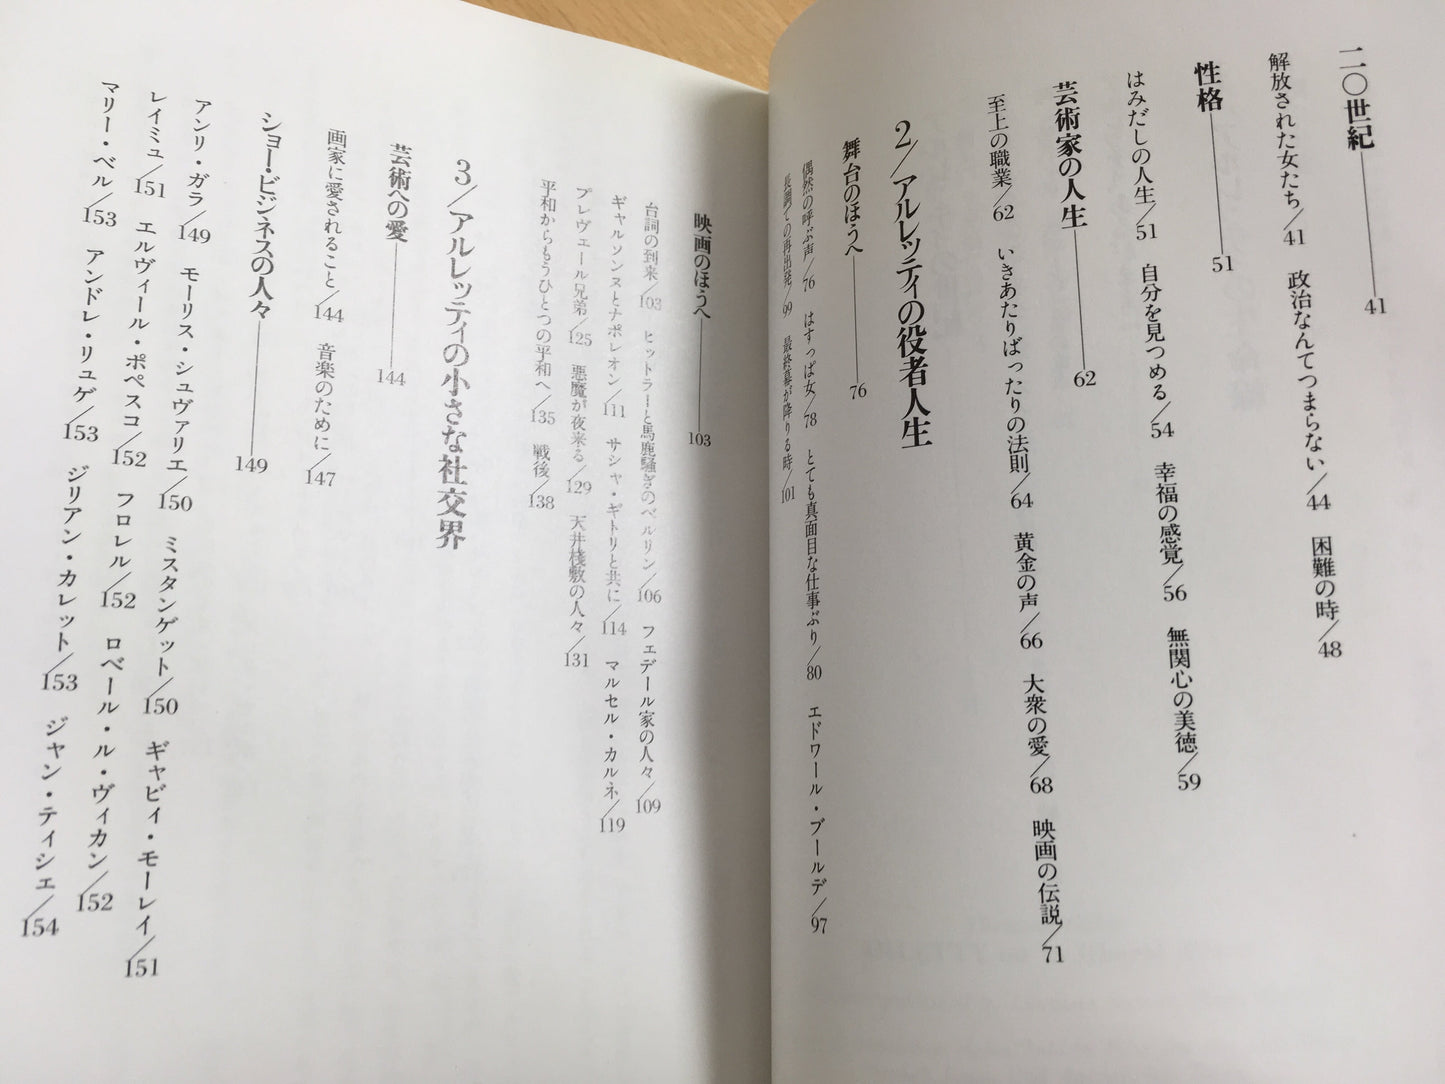 二〇世紀――41
解放された女たち/41　政治なんてつまらない/44　困難の時/48
性格――51
はみだしの人生/51　自分を見つめる/54　幸福の感覚/56　無関心の美徳/59
芸術家の人生――62
至上の職業/62　いきあたりばったりの法則/64　黄金の声/66　大衆の愛/68　映画の伝説/71
2/アルレッティの役者人生
舞台のほうへ――76
偶然の呼ぶ声/76　はすっぱ女/78　とても真面目な仕事ぶり/80　エドワール・ブールデ/97
長調での再出発/99　最終幕が降りる時/101
映画のほうへ――103
台詞の到来/103　ヒットラーと馬鹿騒ぎのベルリン/106　フェデール家の人々/109
ギャルソンヌとナポレオン/111　サシャ・ギトリと共に/114　マルセル・カルネ/119
プレヴェール兄弟/125　悪魔が夜来る/129　天井桟敷の人々/131
平和からもうひとつの平和へ/135　戦後/138
3/アルレッティの小さな社交界
芸術への愛――144
画家に愛されること/144　音楽のために/147
ショー・ビジネスの人々――149
アンリ・ガラ/149　モーリス・シュヴァリエ/150　ミスタンゲット/150　ギャビィ・モーレイ/151
レイミュ/151　エルヴィール・ポペスコ/152　フロレル/152　ロベール・ル・ヴィカン/152
マリー・ベル/153　アンドレ・リュゲ/153　ジリアン・カレット/153　ジャン・ティシエ/154